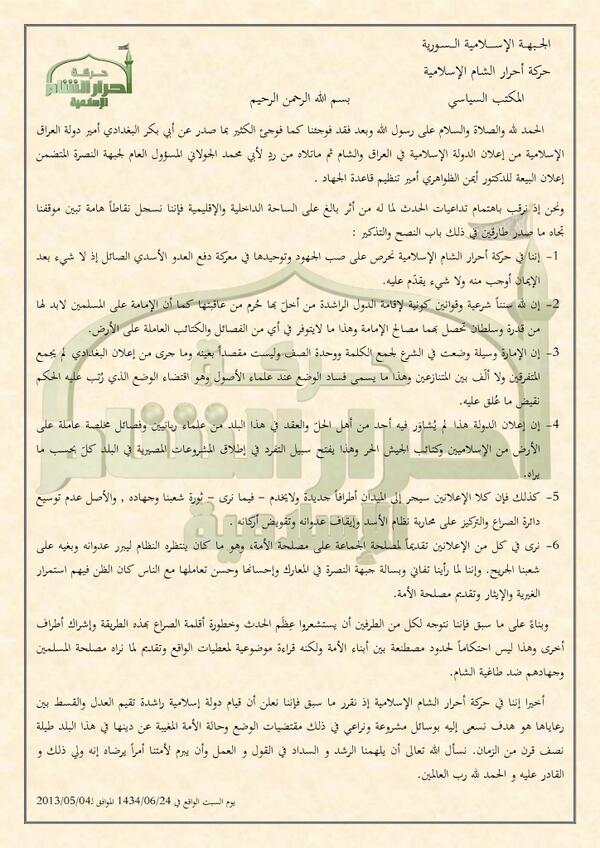 الجـبهـة الإســـلامية الـسـورية
حركة أحرار الشام الإسلامية
المكتب السياسي
بسم الله الرحمن الرحيم
حركة
أحرار الشام
الإسلامية
الحمد لله والصلاة والسلام على رسول الله وبعد فقد فوجئنا كما فوجئ الكثير بما صدر عن أبي بكر البغدادي أمير دولة العراق
الإسلامية من إعلان الدولة الإسلامية في العراق والشام ثم ماتلاه من ردٍ لأبي محمد الجولاني المسؤول العام لجبهة النصرة المتضمن
إعلان البيعة للدكتور أيمن الظواهري أمير تنظيم قاعدة الجهاد .
ونحن إذ نرقب باهتمام تداعيات الحدث لما له من أثر بالغ على الساحة الداخلية والإقليمية فإننا نسجل نقاطاً هامة تبين موقفنا
تجاه ما صدر طارقين في ذلك باب النصح والتذكير :
1- إننا في حركة أحرار الشام الإسلامية نحرص على صب الجهود وتوحيدها في معركة دفع العدو الأسدي الصائل إذ لا شيء بعد
الإيمان أوجب منه ولا شيء يقدّم عليه.
2- إن لله سنناً شرعية وقوانين كونية لإقامة الدول الراشدة من أخلّ بها حُرم من عاقبتها كما أن الإمامة على المسلمين لابد لها
من قدرة وسلطان تحصل بهما مصالح الإمامة وهذا ما لايتوفر في أي من الفصائل والكتائب العاملة على الأرض.
3- إن الإمارة وسيلة وضعت في الشرع لجمع الكلمة ووحدة الصف وليست مقصداً بعينه وما جرى من إعلان البغدادي لم يجمع
المتفرقين ولا ألّف بين المتنازعين وهذا ما يسمى فساد الوضع عند علماء الأصول وهو اقتضاء الوضع الذي رُتب عليه الحكم
نقيض ما عُلق عليه.
4- إن إعلان الدولة هذا لم يُشاوَر فيه أحد من أهل الحلّ والعقد في هذا البلد من علماء ربانيين وفصائل مخلصة عاملة على
الأرض من الإسلاميين وكتائب الجيش الحر وهذا يفتح سبيل التفرد في إطلاق المشروعات المصيرية في البلد كلّ بحسب ما
يراه.
5- كذلك فإن كلا الإعلانين سيجر إلى الميدان أطرافاً جديدة ولايخدم - فيما نرى - ثورة شعبنا وجهاده , والأصل عدم توسيع
دائرة الصراع والتركيز على محاربة نظام الأسد وإيقاف عدوانه وتقويض أركانه .
6- نرى في كل من الإعلانين تقديماً لمصلحة الجماعة على مصلحة الأمة، وهو ما كان ينتظره النظام ليبرر عدوانه وبغيه على
شعبنا الجريح. وإننا لما رأينا تفاني وبسالة جبهة النصرة في المعارك وإحسانها وحسن تعاملها مع الناس كان الظن فيهم استمرار
الغيرية والإيثار وتقديم مصلحة الأمة.
وبناءً على ما سبق فإننا نتوجه لكل من الطرفين أن يستشعروا عِظَم الحدث وخطورة أقلمة الصراع بهذه الطريقة وإشراك أطراف
أخرى وهذا ليس احتكاماً لحدود مصطنعة بين أبناء الأمة ولكنه قراءة موضوعية لمعطيات الواقع وتقديم لما نراه مصلحة المسلمين
وجهادهم ضد طاغية الشام.
أخيرا إننا في حركة أحرار الشام الإسلامية إذ نقرر ما سبق فإننا نعلن أن قيام دولة إسلامية راشدة تقيم العدل والقسط بين
رعاياها هو هدف نسعى إليه بوسائل مشروعة ونراعي في ذلك مقتضيات الوضع وحالة الأمة المغيبة عن دينها في هذا البلد طيلة
نصف قرن من الزمان. نسأل الله تعالى أن يلهمنا الرشد و السداد في القول و العمل وأن يبرم لأمتنا أمراً يرضاه إنه ولي ذلك و
القادر عليه و الحمد لله رب العالمين.
يوم السبت الواقع في 1434/06/24 الموافق لـ2013/05/04